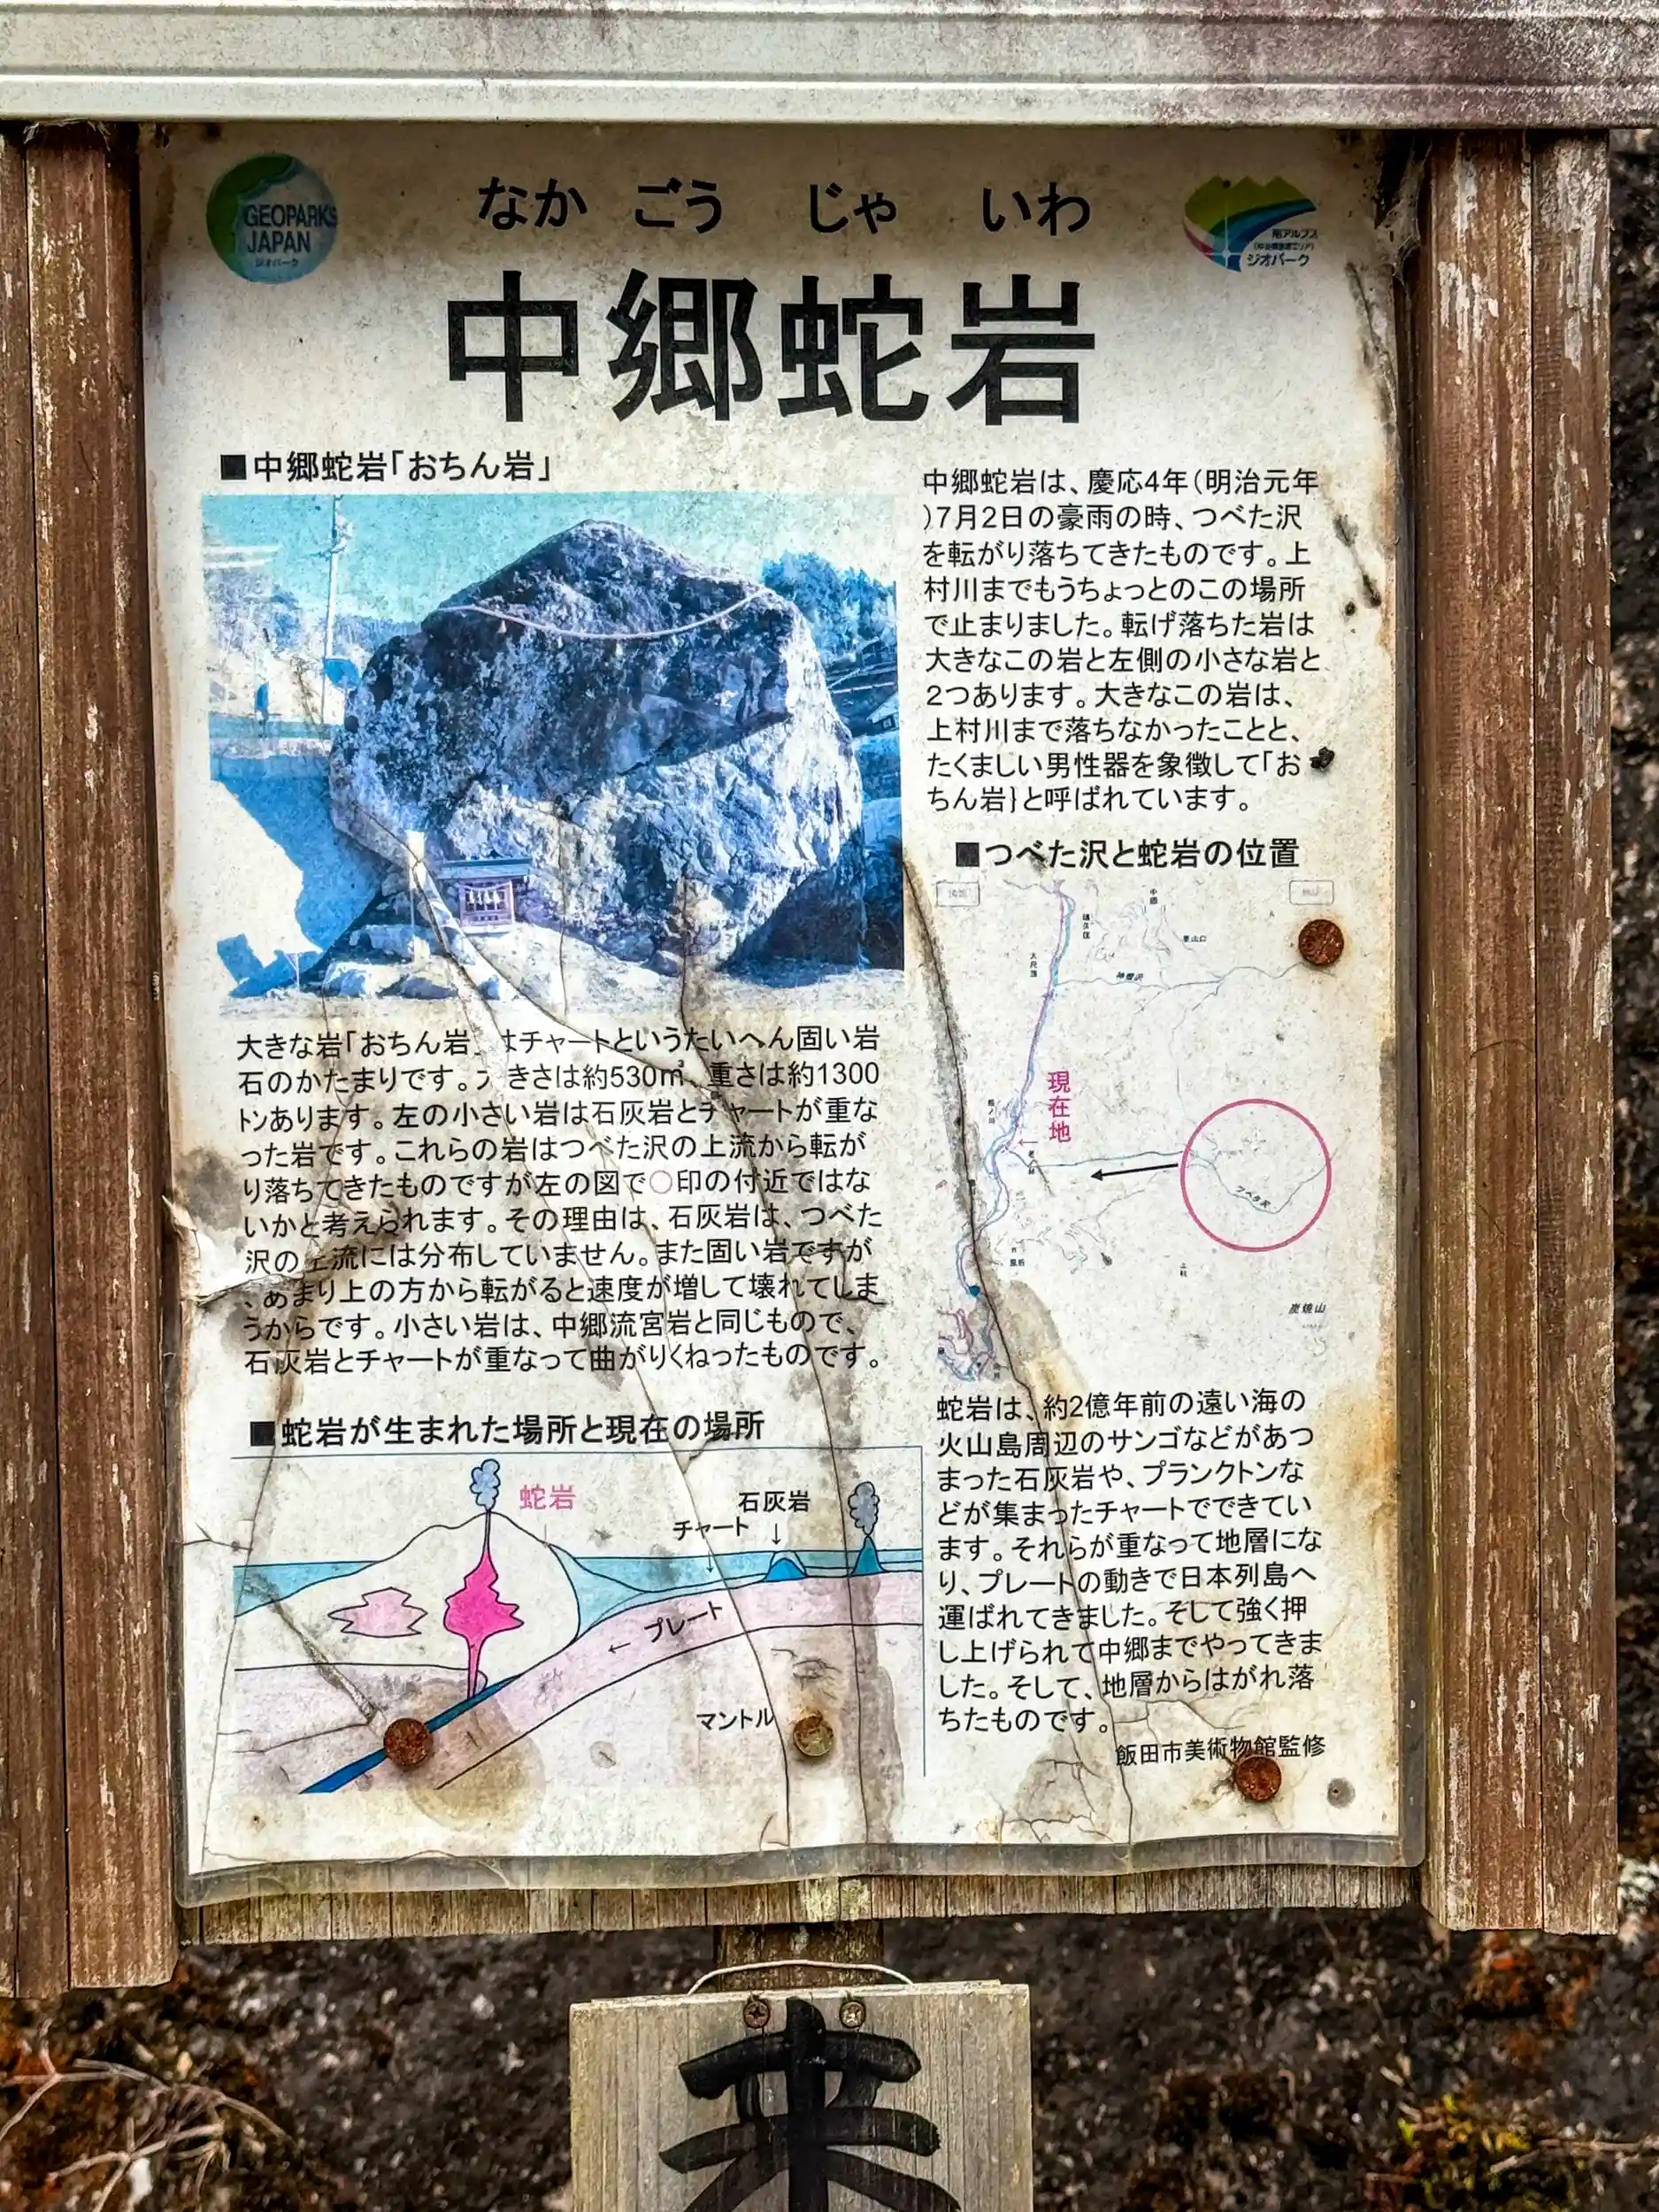 GEOPARKS
JAPAN
ジオパーク
なか ごう じゃ いわ
南アルプス
ジオパーク
中郷蛇岩
■中郷蛇岩「おちん岩」
中郷蛇岩は、慶応4年(明治元年
)7月2日の豪雨の時、つべた沢
を転がり落ちてきたものです。上
村川までもうちょっとのこの場所
で止まりました。転げ落ちた岩は
大きなこの岩と左側の小さな岩と
2つあります。大きなこの岩は、
上村川まで落ちなかったことと、
たくましい男性器を象徴して「お
ちん岩}と呼ばれています。
■つべた沢と蛇岩の位置
現在地
炭焼山
大きな岩「おちん岩」はチャートというたいへん固い岩
石のかたまりです。大きさは約530㎥、重さは約1300
トンあります。左の小さい岩は石灰岩とチャートが重な
った岩です。これらの岩はつべた沢の上流から転が
り落ちてきたものですが左の図で○印の付近ではな
いかと考えられます。その理由は、石灰岩は、つべた
沢の上流には分布していません。また固い岩ですが
、あまり上の方から転がると速度が増して壊れてしま
うからです。小さい岩は、中郷流宮岩と同じもので、
石灰岩とチャートが重なって曲がりくねったものです。
■蛇岩が生まれた場所と現在の場所
蛇岩
石灰岩
チャート
← プレート
マントル
蛇岩は、約2億年前の遠い海の
火山島周辺のサンゴなどがあつ
まった石灰岩や、プランクトンな
どが集まったチャートでできてい
ます。それらが重なって地層にな
り、プレートの動きで日本列島へ
運ばれてきました。そして強く押
し上げられて中郷までやってきま
した。そして、地層からはがれ落
ちたものです。
飯田市美術物館監修